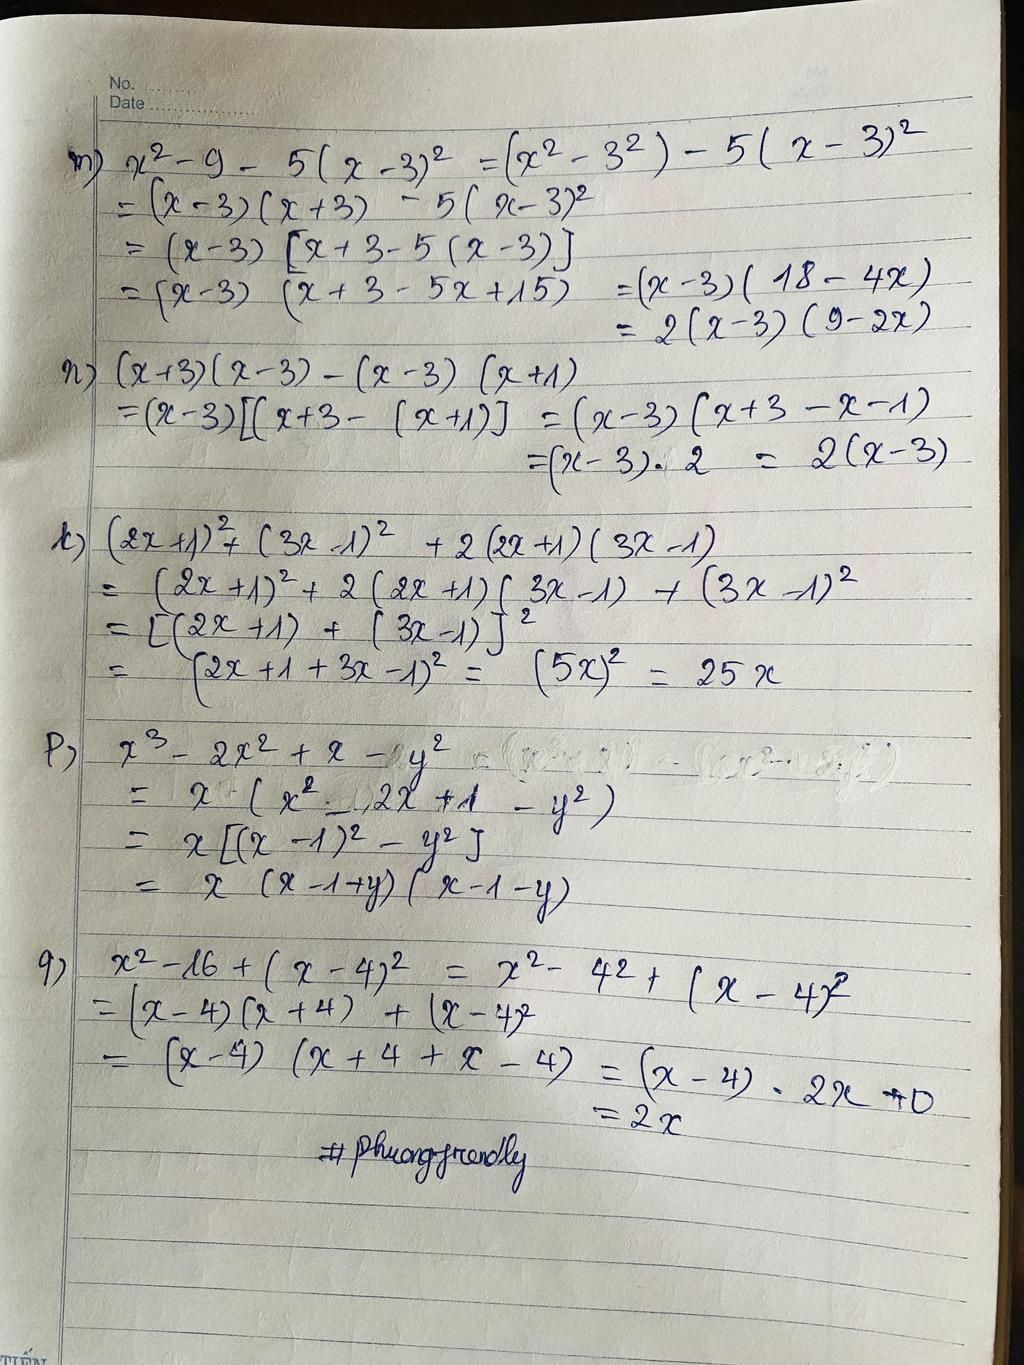 No. ..........
Date ....................
m) x² - 9 - 5(x - 3)² = (x² - 3²) - 5(x - 3)²
= (x - 3)(x + 3) - 5(x - 3)²
= (x - 3) [x + 3 - 5(x - 3)]
= (x - 3) (x + 3 - 5x + 15) = (x - 3)(18 - 4x)
= 2(x - 3)(9 - 2x)
n) (x + 3)(x - 3) - (x - 3)(x + 1)
= (x - 3)[(x + 3 - (x + 1)] = (x - 3)(x + 3 - x - 1)
= (x - 3). 2 = 2(x - 3)
k) (2x + 1)² + (3x - 1)² + 2(2x + 1)(3x - 1)
= (2x + 1)² + 2(2x + 1)(3x - 1) + (3x - 1)²
= [(2x + 1) + (3x - 1)]²
= (2x + 1 + 3x - 1)² = (5x)² = 25x
p) x³ - 2x² + x - y²
= x (x² - 2x + 1 - y²)
= x[(x - 1)² - y²]
= x (x - 1 + y)(x - 1 - y)
q) x² - 16 + (x - 4)² = x² - 4² + (x - 4)²
= (x - 4)(x + 4) + (x - 4)²
= (x - 4) (x + 4 + x - 4) = (x - 4) . 2x + 0
= 2x
# phuongfriendly
TIẾN